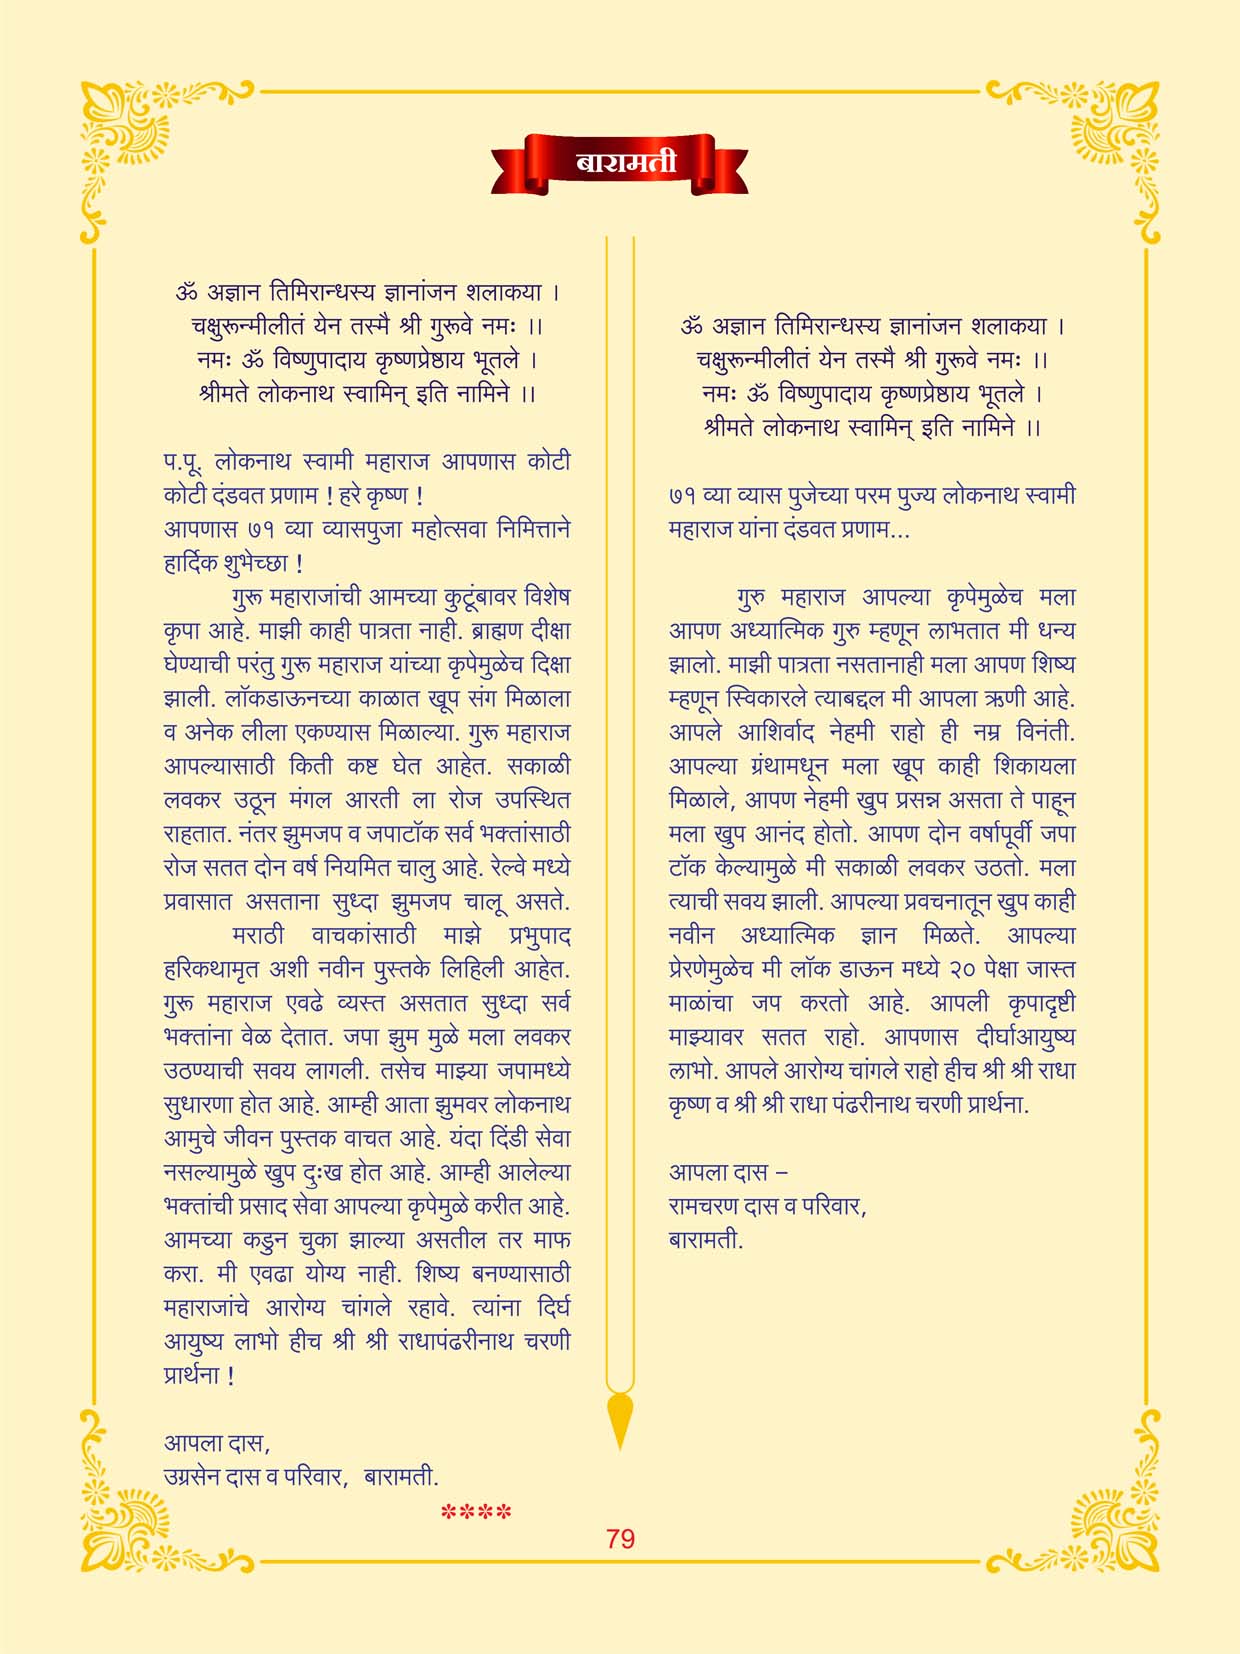 बारामती
ॐ अज्ञान तिमिरान्धस्य ज्ञानांजन शलाकया ।
चक्षुरून्मीलीतं येन तस्मै श्री गुरूवे नमः ।।
नमः ॐ विष्णुपादाय कृष्णप्रेष्ठाय भूतले ।
श्रीमते लोकनाथ स्वामिन् इति नामिने ।।
प.पू. लोकनाथ स्वामी महाराज आपणास कोटी
कोटी दंडवत प्रणाम ! हरे कृष्ण !
आपणास ७१ व्या व्यासपुजा महोत्सवा निमित्ताने
हार्दिक शुभेच्छा !
गुरू महाराजांची आमच्या कुटूंबावर विशेष
कृपा आहे. माझी काही पात्रता नाही. ब्राह्मण दीक्षा
घेण्याची परंतु गुरू महाराज यांच्या कृपेमुळेच दिक्षा
झाली. लॉकडाऊनच्या काळात खूप संग मिळाला
व अनेक लीला एकण्यास मिळाल्या. गुरू महाराज
आपल्यासाठी किती कष्ट घेत आहेत. सकाळी
लवकर उठून मंगल आरती ला रोज उपस्थित
राहतात. नंतर झुमजप व जपाटॉक सर्व भक्तांसाठी
रोज सतत दोन वर्ष नियमित चालु आहे. रेल्वे मध्ये
प्रवासात असताना सुध्दा झुमजप चालू असते.
मराठी वाचकांसाठी माझे प्रभुपाद
हरिकथामृत अशी नवीन पुस्तके लिहिली आहेत.
गुरू महाराज एवढे व्यस्त असतात सुध्दा सर्व
भक्तांना वेळ देतात. जपा झुम मुळे मला लवकर
उठण्याची सवय लागली. तसेच माझ्या जपामध्ये
सुधारणा होत आहे. आम्ही आता झुमवर लोकनाथ
आमुचे जीवन पुस्तक वाचत आहे. यंदा दिंडी सेवा
नसल्यामुळे खुप दुःख होत आहे. आम्ही आलेल्या
भक्तांची प्रसाद सेवा आपल्या कृपेमुळे करीत आहे.
आमच्या कडुन चुका झाल्या असतील तर माफ
करा. मी एवढा योग्य नाही. शिष्य बनण्यासाठी
महाराजांचे आरोग्य चांगले रहावे. त्यांना दिर्घ
आयुष्य लाभो हीच श्री श्री राधापंढरीनाथ चरणी
प्रार्थना !
आपला दास,
उग्रसेन दास व परिवार, बारामती.
****
ॐ अज्ञान तिमिरान्धस्य ज्ञानांजन शलाकया ।
चक्षुरून्मीलीतं येन तस्मै श्री गुरूवे नमः ।।
नमः ॐ विष्णुपादाय कृष्णप्रेष्ठाय भूतले ।
श्रीमते लोकनाथ स्वामिन् इति नामिने ।।
७१ व्या व्यास पुजेच्या परम पुज्य लोकनाथ स्वामी
महाराज यांना दंडवत प्रणाम...
गुरु महाराज आपल्या कृपेमुळेच मला
आपण अध्यात्मिक गुरु म्हणून लाभतात मी धन्य
झालो. माझी पात्रता नसतानाही मला आपण शिष्य
म्हणून स्विकारले त्याबद्दल मी आपला ऋणी आहे.
आपले आशिर्वाद नेहमी राहो ही नम्र विनंती.
आपल्या ग्रंथामधून मला खूप काही शिकायला
मिळाले, आपण नेहमी खुप प्रसन्न असता ते पाहून
मला खुप आनंद होतो. आपण दोन वर्षापूर्वी जपा
टॉक केल्यामुळे मी सकाळी लवकर उठतो. मला
त्याची सवय झाली. आपल्या प्रवचनातून खुप काही
नवीन अध्यात्मिक ज्ञान मिळते. आपल्या
प्रेरणेमुळेच मी लॉक डाऊन मध्ये २० पेक्षा जास्त
माळांचा जप करतो आहे. आपली कृपादृष्टी
माझ्यावर सतत राहो. आपणास दीर्घाआयुष्य
लाभो. आपले आरोग्य चांगले राहो हीच श्री श्री राधा
कृष्ण व श्री श्री राधा पंढरीनाथ चरणी प्रार्थना.
आपला दास –
रामचरण दास व परिवार,
बारामती.
79